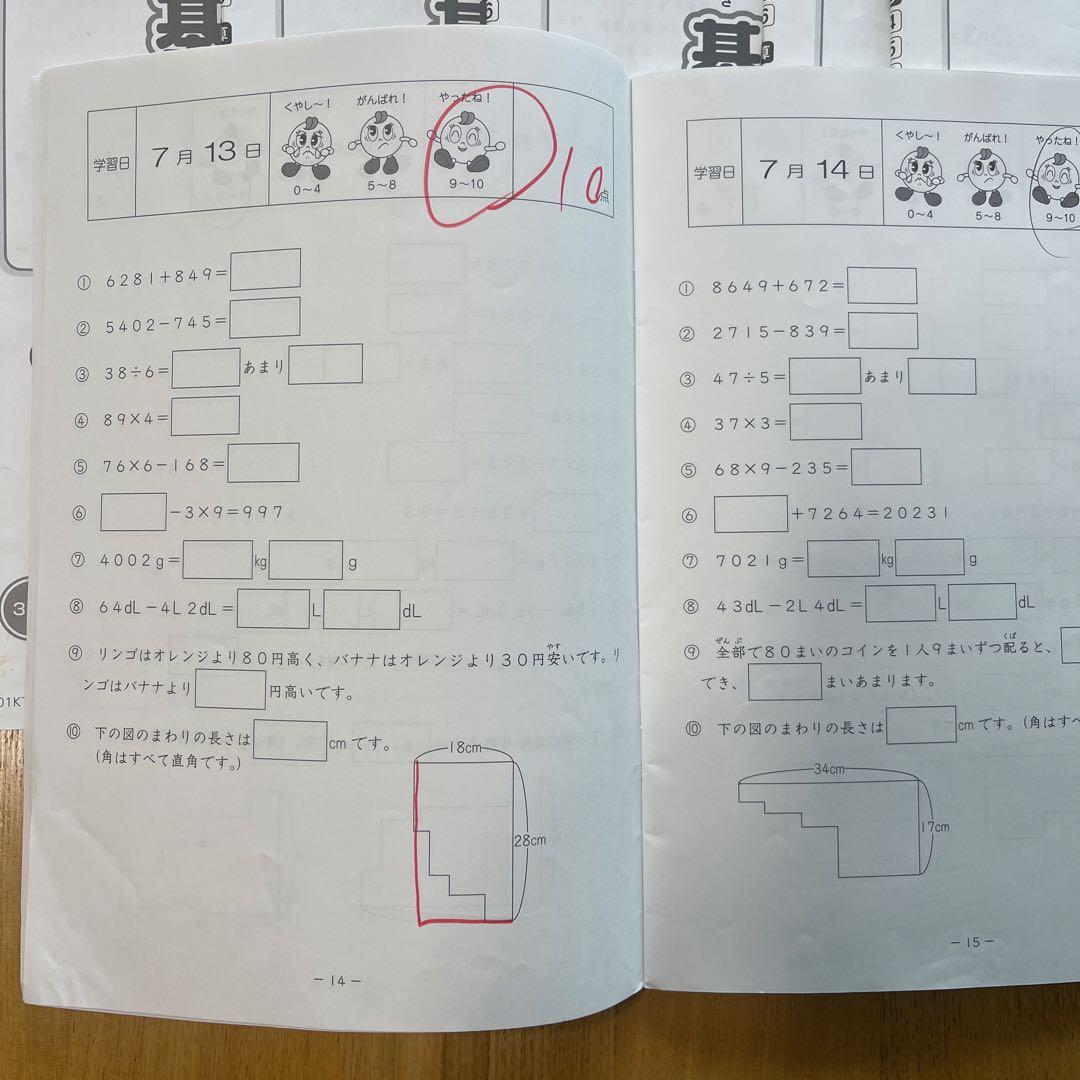 基
算
基
算
くやし〜！
がんばれ！
やったね！
学習日
7月13日
0〜4
5〜8
9〜10
10点
① 6281+849=
② 5402−745=
③ 38÷6= あまり
④ 89×4=
⑤ 76×6−168=
⑥ −3×9=997
⑦ 4002g= kg g
⑧ 64dL−4L 2dL= L dL
やす
⑨ リンゴはオレンジより80円高く、バナナはオレンジより30円安いです。リ
ンゴはバナナより 円高いです。
⑩ 下の図のまわりの長さは cmです。
(角はすべて直角です。)
18cm
28cm
−14−
くやし〜！
がんばれ！
やったね！
学習日
7月14日
0〜4
5〜8
9〜10
① 8649+672=
② 2715−839=
③ 47÷5= あまり
④ 37×3=
⑤ 68×9−235=
⑥ +7264=20231
⑦ 7021g= kg g
⑧ 43dL−2L 4dL= L dL
ぜんぶ くば
⑨ 全部で80まいのコインを1人9まいずつ配ると、
でき、 まいあまります。
⑩ 下の図のまわりの長さは cmです。(角はすべ
34cm
17cm
−15−
3